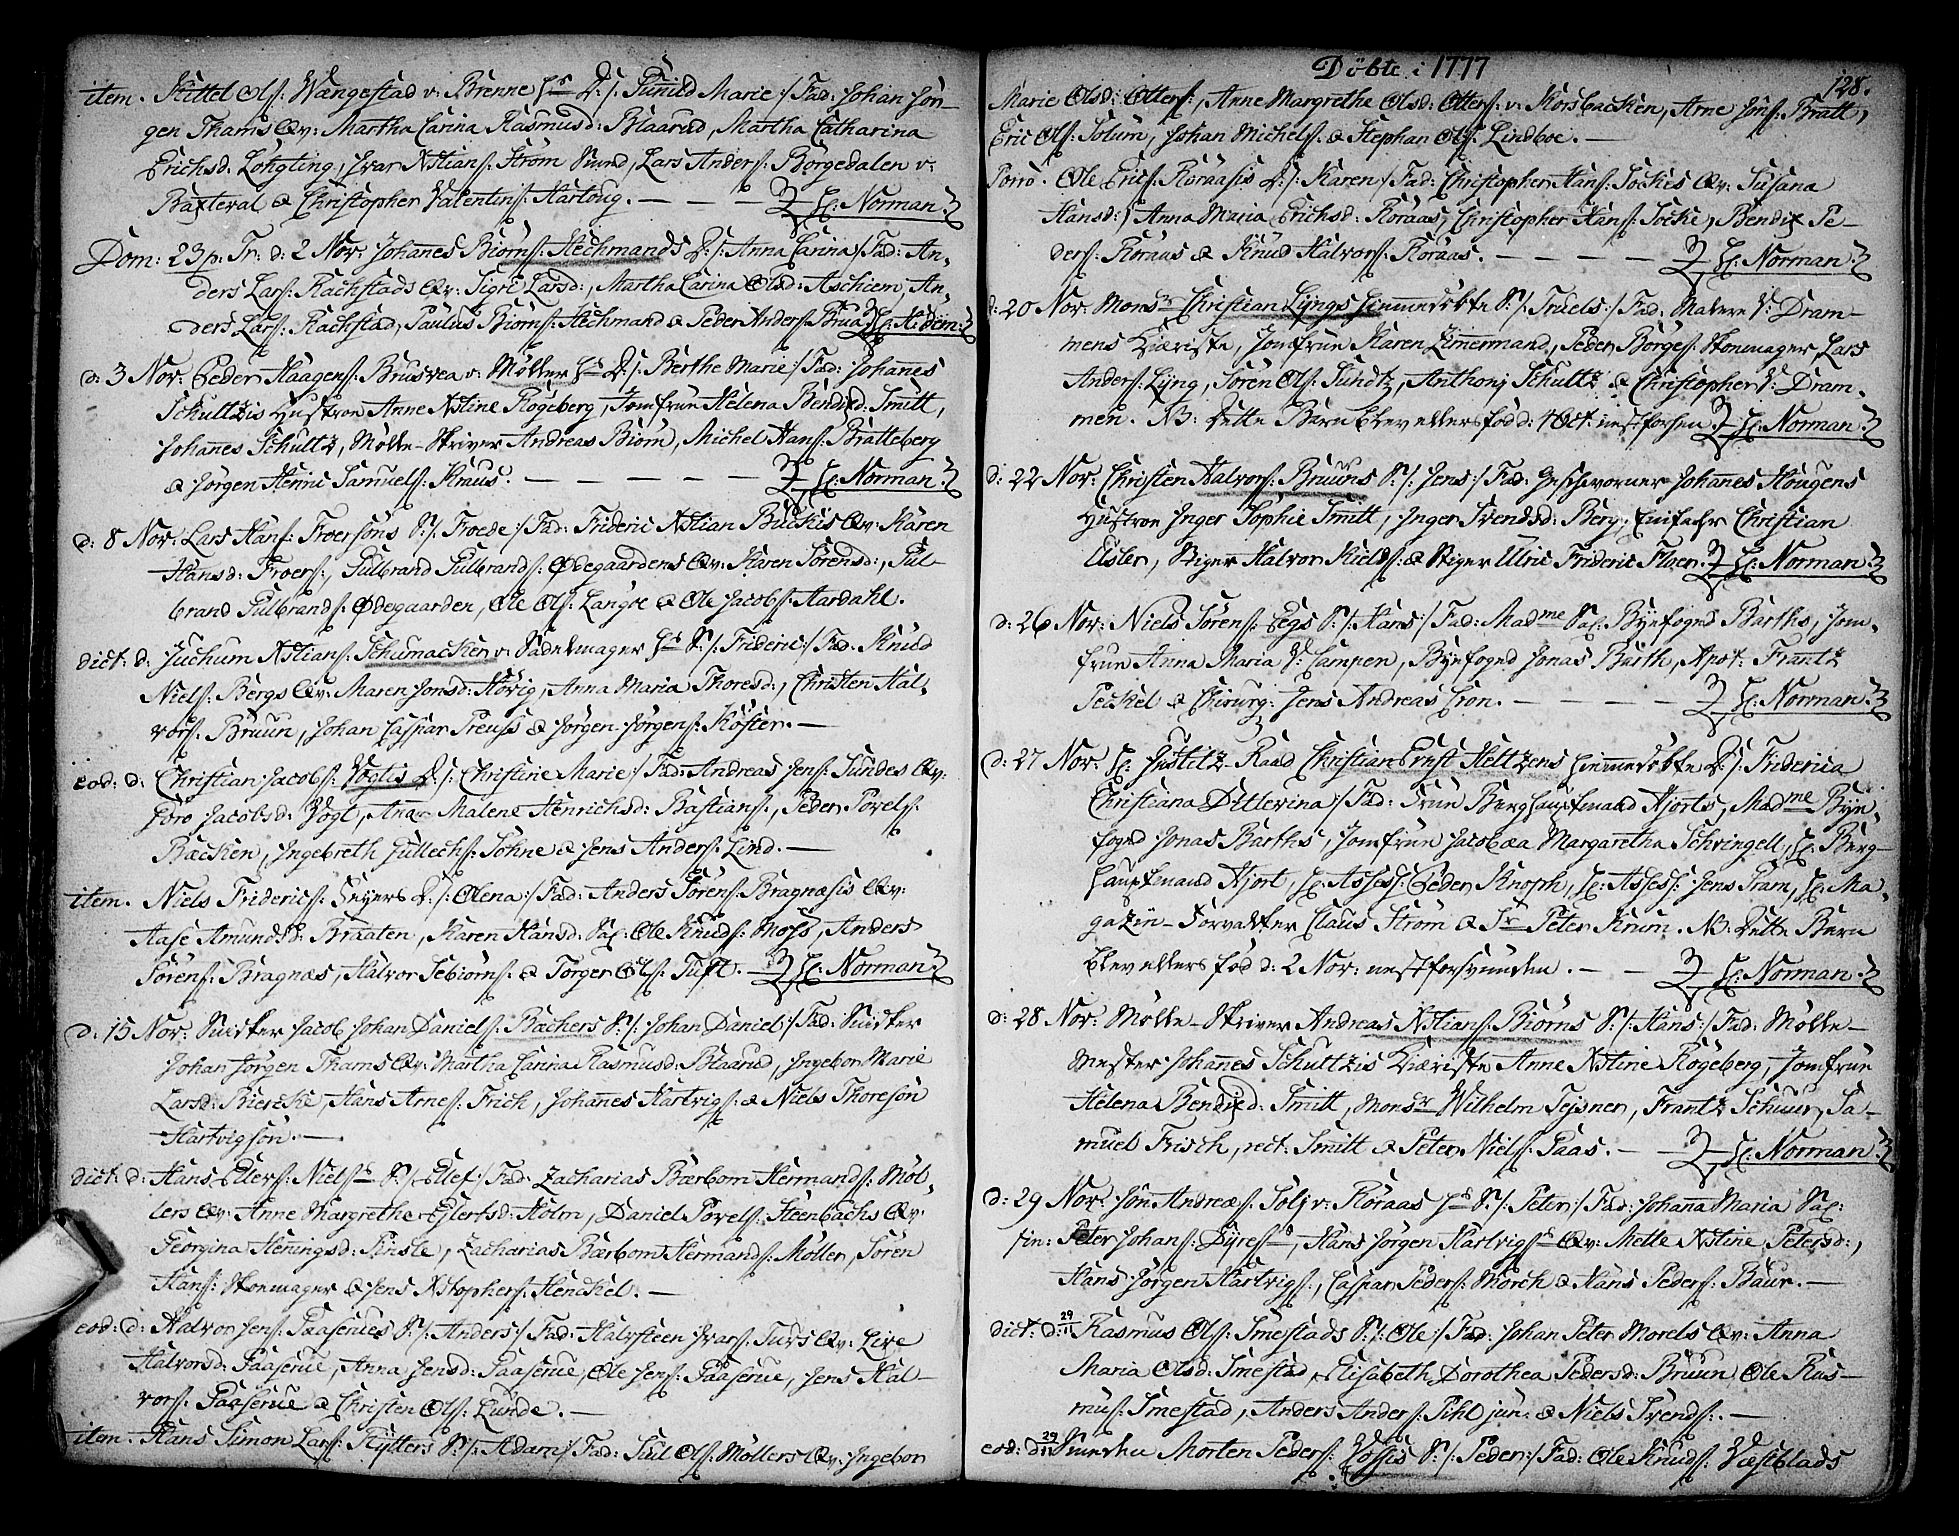 item. Kittel Ols: Wængestad v: Brenne Hs D:/: Gunild Marie :/ Fad: Johan Jør-
gen Thams Qv: Martha Carina Rasmusd: Blaarud, Martha Catharina
Erichsd: Løngting, Ivar Xstians: Strøm Svend, Lars Anders: Børgedalen v:
Baxteval & Christopher Valentins: Hartoug. — H: Norman
Dom: 23 p. Tr: d: 2 Nov: Johanes Biørns: Hechmands D:/: Anna Carina :/ Fad: An-
ders Lars: Rachstads Qv: Sigri Larsd:, Martha Carina Olsd: Aschiem, An-
ders Lars: Rachstad, Paulus Biørns: Hechmand & Peder Anders: Brua H: Hiem:
d: 3 Nov: Peder Haagens: Brusvea v: Møller Hs D:/: Berthe Marie :/ Fad: Johanes
Schultzis Hustroe Anne Xstine Rogeberg, Jomfrue Helena Bendixd: Smitt,
Johanes Schultz, Mølle-Skriver Andreas Biørn, Michel Hans: Bratteberg
& Jørgen Henric Samuels: Kraus. — H: Norman
d: 8 Nov: Lars Hans: Froersøns S:/: Froede :/ Fad: Frideric Xstian Buckis Qv: Karen
Hansd: Froers:, Gulbrand Gulbrands: Ødegaardens Qv: Karen Sørensd:, Gul-
brand Gulbrands: Ødegaarden, Ole Ols: Langøe & Ole Jacobs: Aardahl.
dict: d: Juchum Xstians: Schumacker v: Sadelmager Hs S:/: Frideric :/ Fad: Knud
Niels: Bergs Qv: Maren Jonsd: Høvig, Anna Maria Thoresd:, Christen Hal-
vors: Bruun, Johan Casspar Preuss & Jørgen Jørgens: Køster. —
eod: d: Christian Jacobs: Vogtis D:/: Christine Marie :/ Fad: Andreas Jens: Sundes Qv:
Goro Jacobsd: Vogt, Anne Malene Henrichsd: Bastians:, Peder Povels:
Backen, Ingebreth Gullechs: Sohne & Jens Anders: Lind. —
item. Niels Friderics: Seyers D:/: Olena :/ Fad: Anders Sørens: Bragnæsis Qv:
Aase Amundsd: Braaten, Karen Hansd: Sal: Ole Knuds: Moss, Anders
Sørens: Bragnæs, Halvor Tebiørns: & Torger Ols: Tuft. H: Norman
d: 15 Nov: Snidker Jacob Johan Daniels: Backers S:/: Johan Daniel :/ Fad: Snidker
Johan Jørgen Thams Qv: Martha Carina Rasmusd: Blaarud, Ingebor Marie
Larsd: Biercke, Hans Arnes: Frich, Johanes Hartvigs: & Niels Thoresøn
Hartvigsøn. —
dict: d: Hans Ellefs: Niels: S:/: Ellef :/ Fad: Zacharias Bærbom Hermands: Møl-
lers Qv: Anne Margrethe Ejlertsd: Holm, Daniel Povels: Steenbachs Qv:
Georgina Heningsd: Pinste, Zacharias Bærbom Hermands: Møller, Søren
Hans: Skomager & Jens Xstophers: Henckel. —
eod: d: Halvor Jens: Paaserues S:/: Anders :/ Fad: Halvsteen Ivars: Turs Qv: Live
Halvorsd: Paaserue, Anna Jensd: Paaserue, Ole Jens: Paaserue, Jens Hal-
vors: Paaserue & Christen Ols: Lunde. —
item. Hans Simon Lars: Rytters S:/: Adam :/ Fad: Gul Ols: Møllers Qv: Ingebor
Døbte i 1777
128.
Marie Olsd: Otters:, Anne Margrethe Olsd: Otters: v: Korsbacken, Arne Jons: Bratt,
Eric Ols: Solum, Johan Michels: & Stephan Ols: Lindboe. —
Porro. Ole Erics: Koraasis D:/: Karen :/ Fad: Christopher Hans: Sockis Qv: Susana
Hansd:, Anna Maria Erichsd: Koraas, Christopher Hans: Socke, Bendix Pe-
ders: Koraas & Knud Halvors: Koraas. — H: Norman
d: 20 Nov: Monsr Christian Lyngs hiemmedøbte S:/: Truels :/ Fad: Malene V: Dram-
mens Kiæriste, Jomfrue Karen Zimermand, Peder Børges: Skomager, Lars
Anders: Lyng, Søren Ols: Sundtz, Anthonj Schultz & Christopher V: Dram-
men. NB: Dette Barn blev ellers fød d: 4 Oct: nestforhen. H: Norman
d: 22 Nov: Christen Halvors: Bruuns S:/: Jens :/ Fad: Geschworner Johanes Hougens
Hustroe Inger Sophie Smitt, Inger Svendsd: Berg, Einfahr Christian
Usler, Stiger Halvor Kields: & Stiger Ulric Frideric Floer. H: Norman
d: 26 Nov: Niels Sørens: Segs S:/: Hans :/ Fad: Madme Sal: Byefoged Barths, Jom-
frue Anna Maria V: Campen, Byefoged Jonas Barth, Apot: Frantz
Peckel & Chirurg: Jens Andreas Cron. — H: Norman
d: 27 Nov: H: Justitz-Raad Christian Ernst Heltzens hiemmedøbte D:/: Friderica
Christiana Ditlevina :/ Fad: Frue Berghauptmand Hjorts, Madme Bye-
foged Jonas Barths, Jomfrue Jacobæa Margaretha Schvingell, H: Berg-
hauptmand Hjort, H: Assess: Peder Knoph, H: Assess: Jens Tram, H: Ma-
gazin-Forvalter Claus Strøm & Sr Peter Krum. NB: Dette Barn
blev ellers fød d: 2 Nov: nestforsvunden. — H: Norman
d: 28 Nov: Mølle-Skriver Andreas Xstians: Biørns S:/: Hans :/ Fad: Mølle-
mester Johanes Schultzis Kiæriste Anne Xstine Rogeberg, Jomfrue
Helena Bendixd: Smitt, Monsr Wilhelm Tejsner, Frantz Schuur, Sa-
muel Frisch, rect: Smitt & Peter Niels: Paas. — H: Norman
d: 29 Nov: Jon Andreæs: Solj v: Koraas Hs S:/: Peter :/ Fad: Johanna Maria Sal:
Peter Johans: Dyres:, Hans Jørgen Hartvigs: Qv: Mette Xstine Petersd:,
Hans Jørgen Hartvigs:, Casspar Peders: Morch & Hans Peders: Baur. —
dict: d: 29/11 Rasmus Ols: Smestads S:/: Ole :/ Fad: Johan Peter Morels Qv: Anna
Maria Olsd: Smestad, Elisabeth Dorothea Pedersd: Bruun, Ole Ras-
mus: Smestad, Anders Anders: Pihl jun: & Niels Svends: —
eod: d: 29/11 Morten Peders: Vossis S:/: Peder :/ Fad: Ole Knuds: Væstblads